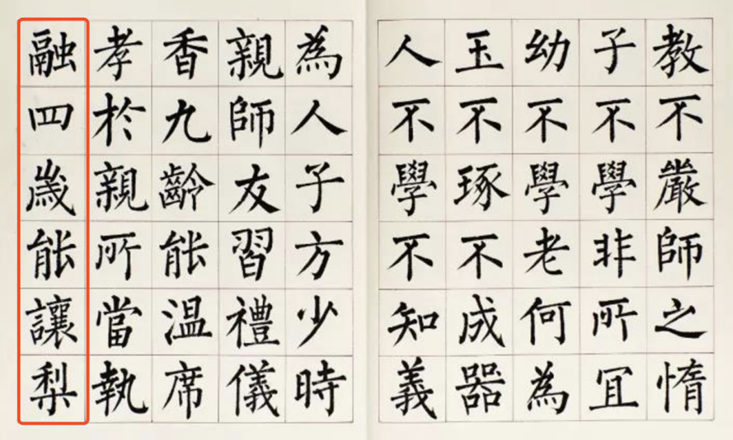 教不嚴師之惰
子不學非所宜
幼不學老何為
玉不琢不成器
人不學不知義
為人子方少時
親師友習禮儀
香九齡能温席
孝於親所當執
融四歲能讓梨